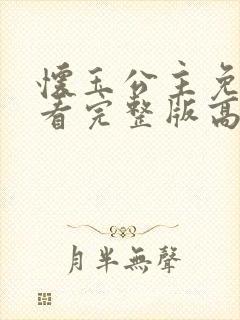 懷玉公主免
看完整版高
月半無聲